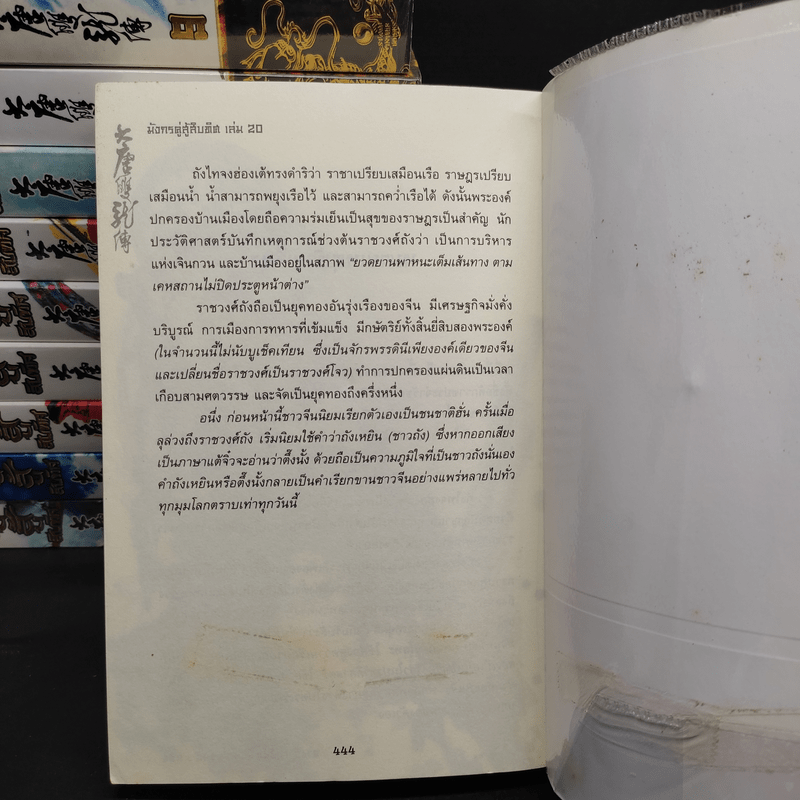 มังกรคู่สู้สิบทิศ เล่ม 20
大唐雙龍傳
ถังไทจงฮ่องเต้ทรงดำริว่า ราชาเปรียบเสมือนเรือ ราษฎรเปรียบ
เสมือนน้ำ น้ำสามารถพยุงเรือไว้ และสามารถคว่ำเรือได้ ดังนั้นพระองค์
ปกครองบ้านเมืองโดยถือความร่มเย็นเป็นสุขของราษฎรเป็นสำคัญ นัก
ประวัติศาสตร์บันทึกเหตุการณ์ช่วงต้นราชวงศ์ถังว่า เป็นการบริหาร
แห่งเจินกวน และบ้านเมืองอยู่ในสภาพ "ยวดยานพาหนะเต็มเส้นทาง ตาม
เคหสถานไม่ปิดประตูหน้าต่าง"
ราชวงศ์ถังถือเป็นยุคทองอันรุ่งเรืองของจีน มีเศรษฐกิจมั่งคั่ง
บริบูรณ์ การเมืองการทหารที่เข้มแข็ง มีกษัตริย์ทั้งสิ้นยี่สิบสองพระองค์
(ในจำนวนนี้ไม่นับบูเช็คเทียน ซึ่งเป็นจักรพรรดินีเพียงองค์เดียวของจีน
และเปลี่ยนชื่อราชวงศ์เป็นราชวงศ์โจว) ทำการปกครองแผ่นดินเป็นเวลา
เกือบสามศตวรรษ และจัดเป็นยุคทองถึงครึ่งหนึ่ง
อนึ่ง ก่อนหน้านี้ชาวจีนนิยมเรียกตัวเองเป็นชนชาติฮั่น ครั้นเมื่อ
ลุล่วงถึงราชวงศ์ถัง เริ่มนิยมใช้คำว่าถังเหยิน (ชาวถัง) ซึ่งหากออกเสียง
เป็นภาษาแต้จิ๋วจะอ่านว่าตึ้งนั้ง ด้วยถือเป็นความภูมิใจที่เป็นชาวถังนั่นเอง
คำถังเหยินหรือตึ้งนั้งกลายเป็นคำเรียกขานชาวจีนอย่างแพร่หลายไปทั่ว
ทุกมุมโลกตราบเท่าทุกวันนี้
444